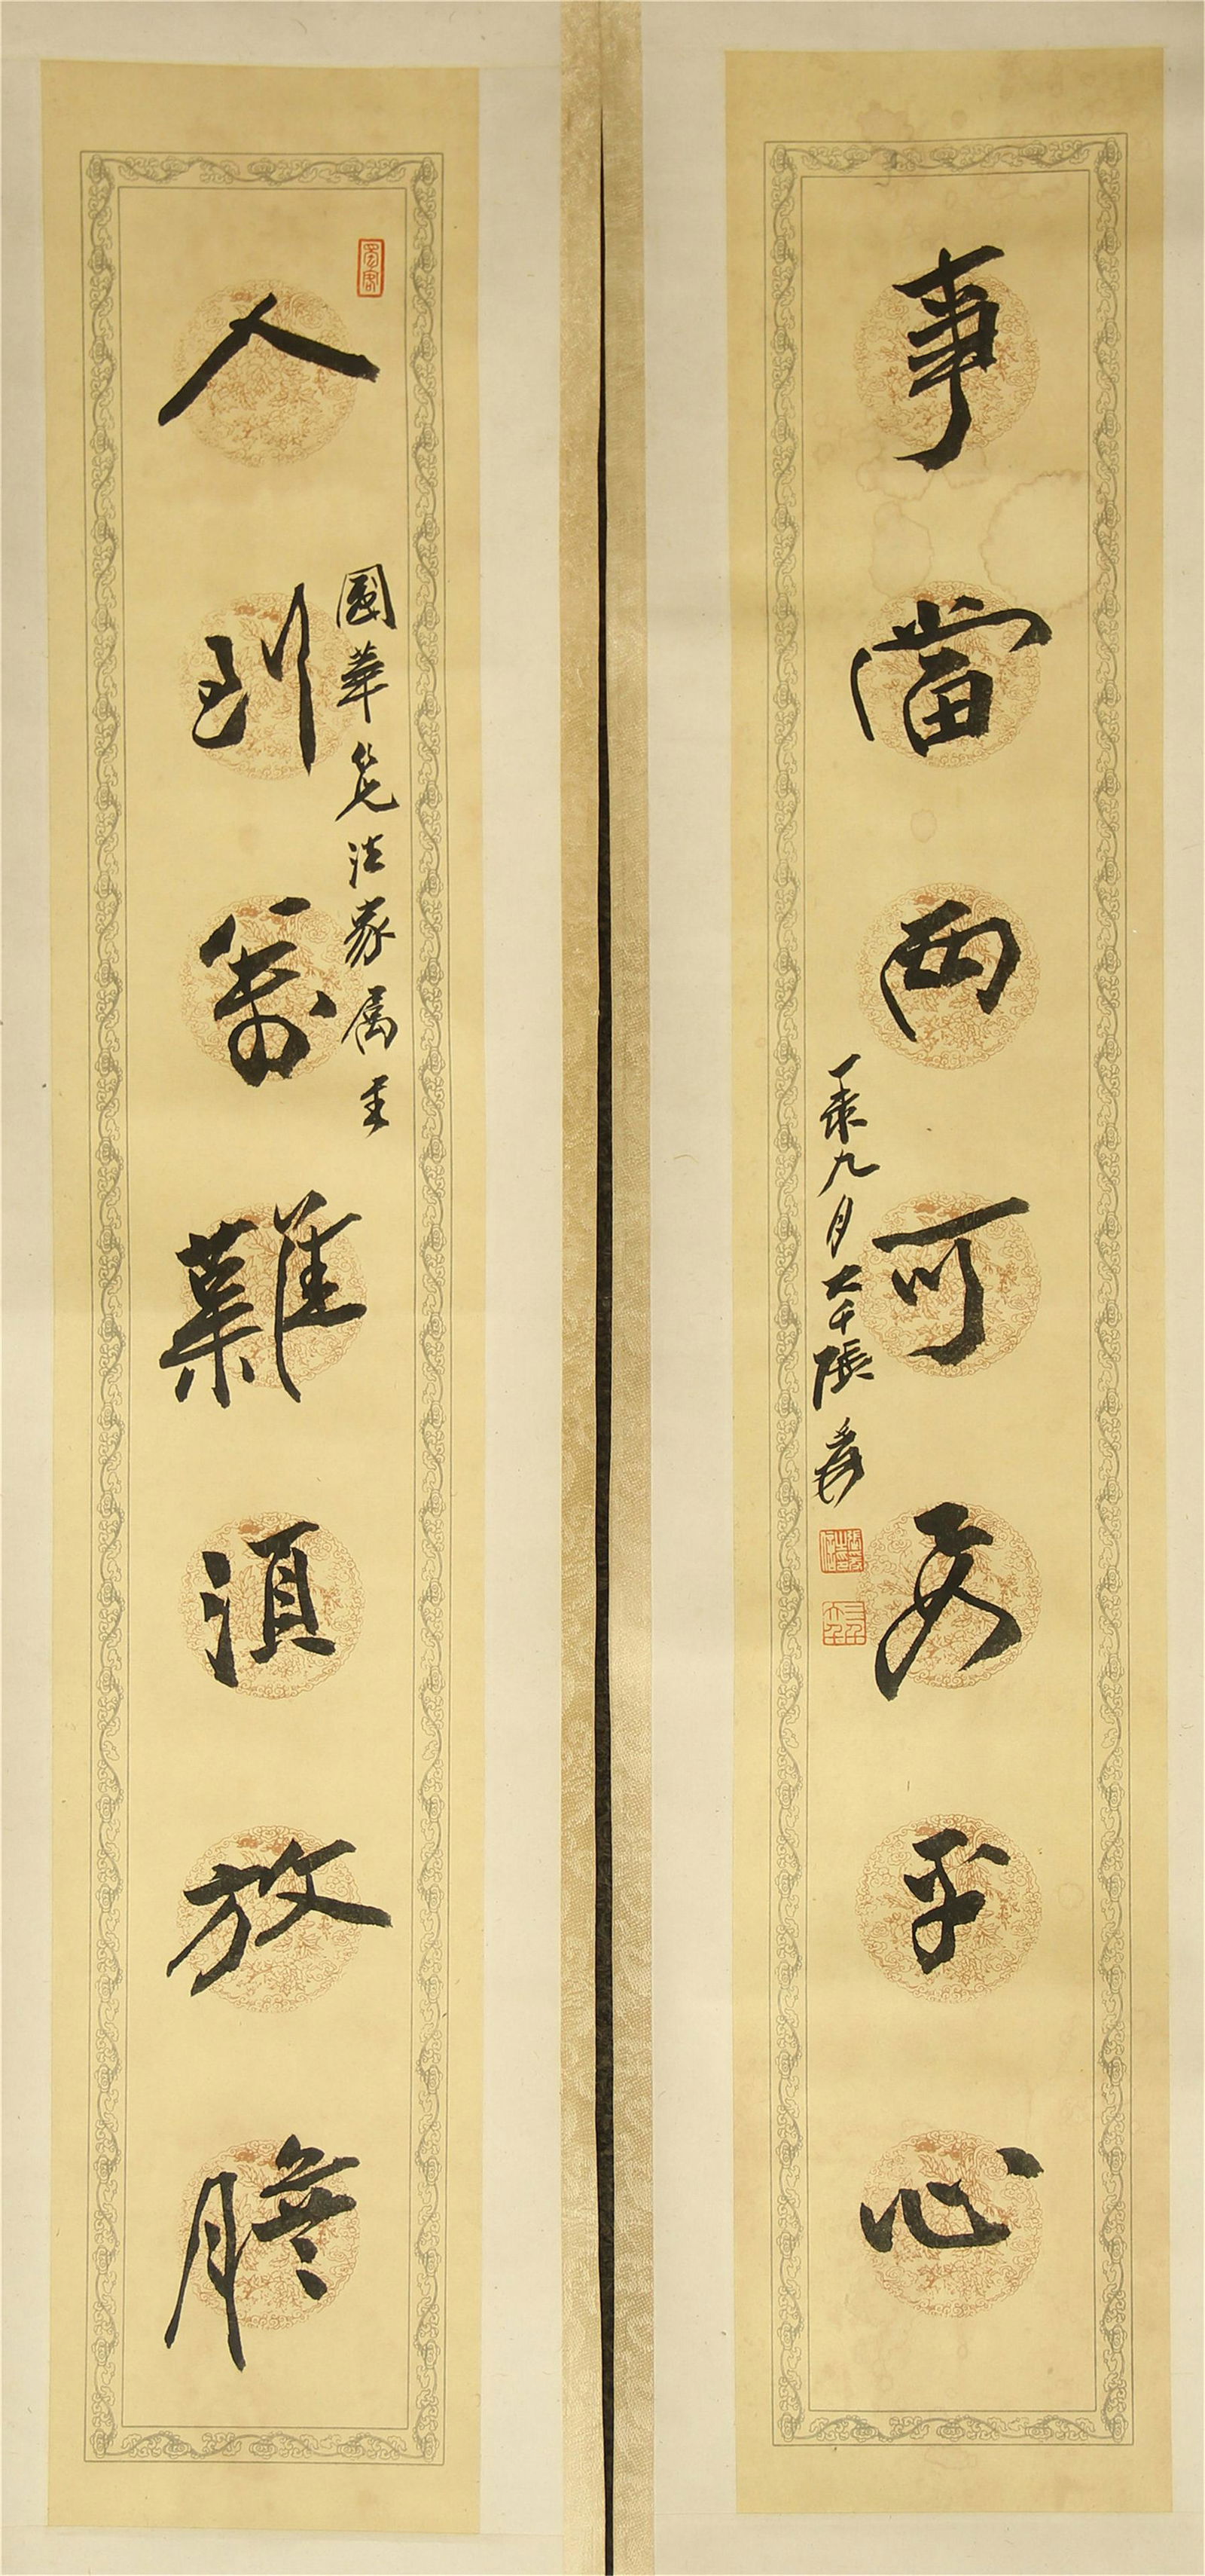 人到萬難須放膽
國華先法家屬正
事當兩可要平心
九月大千張爰
蜀客